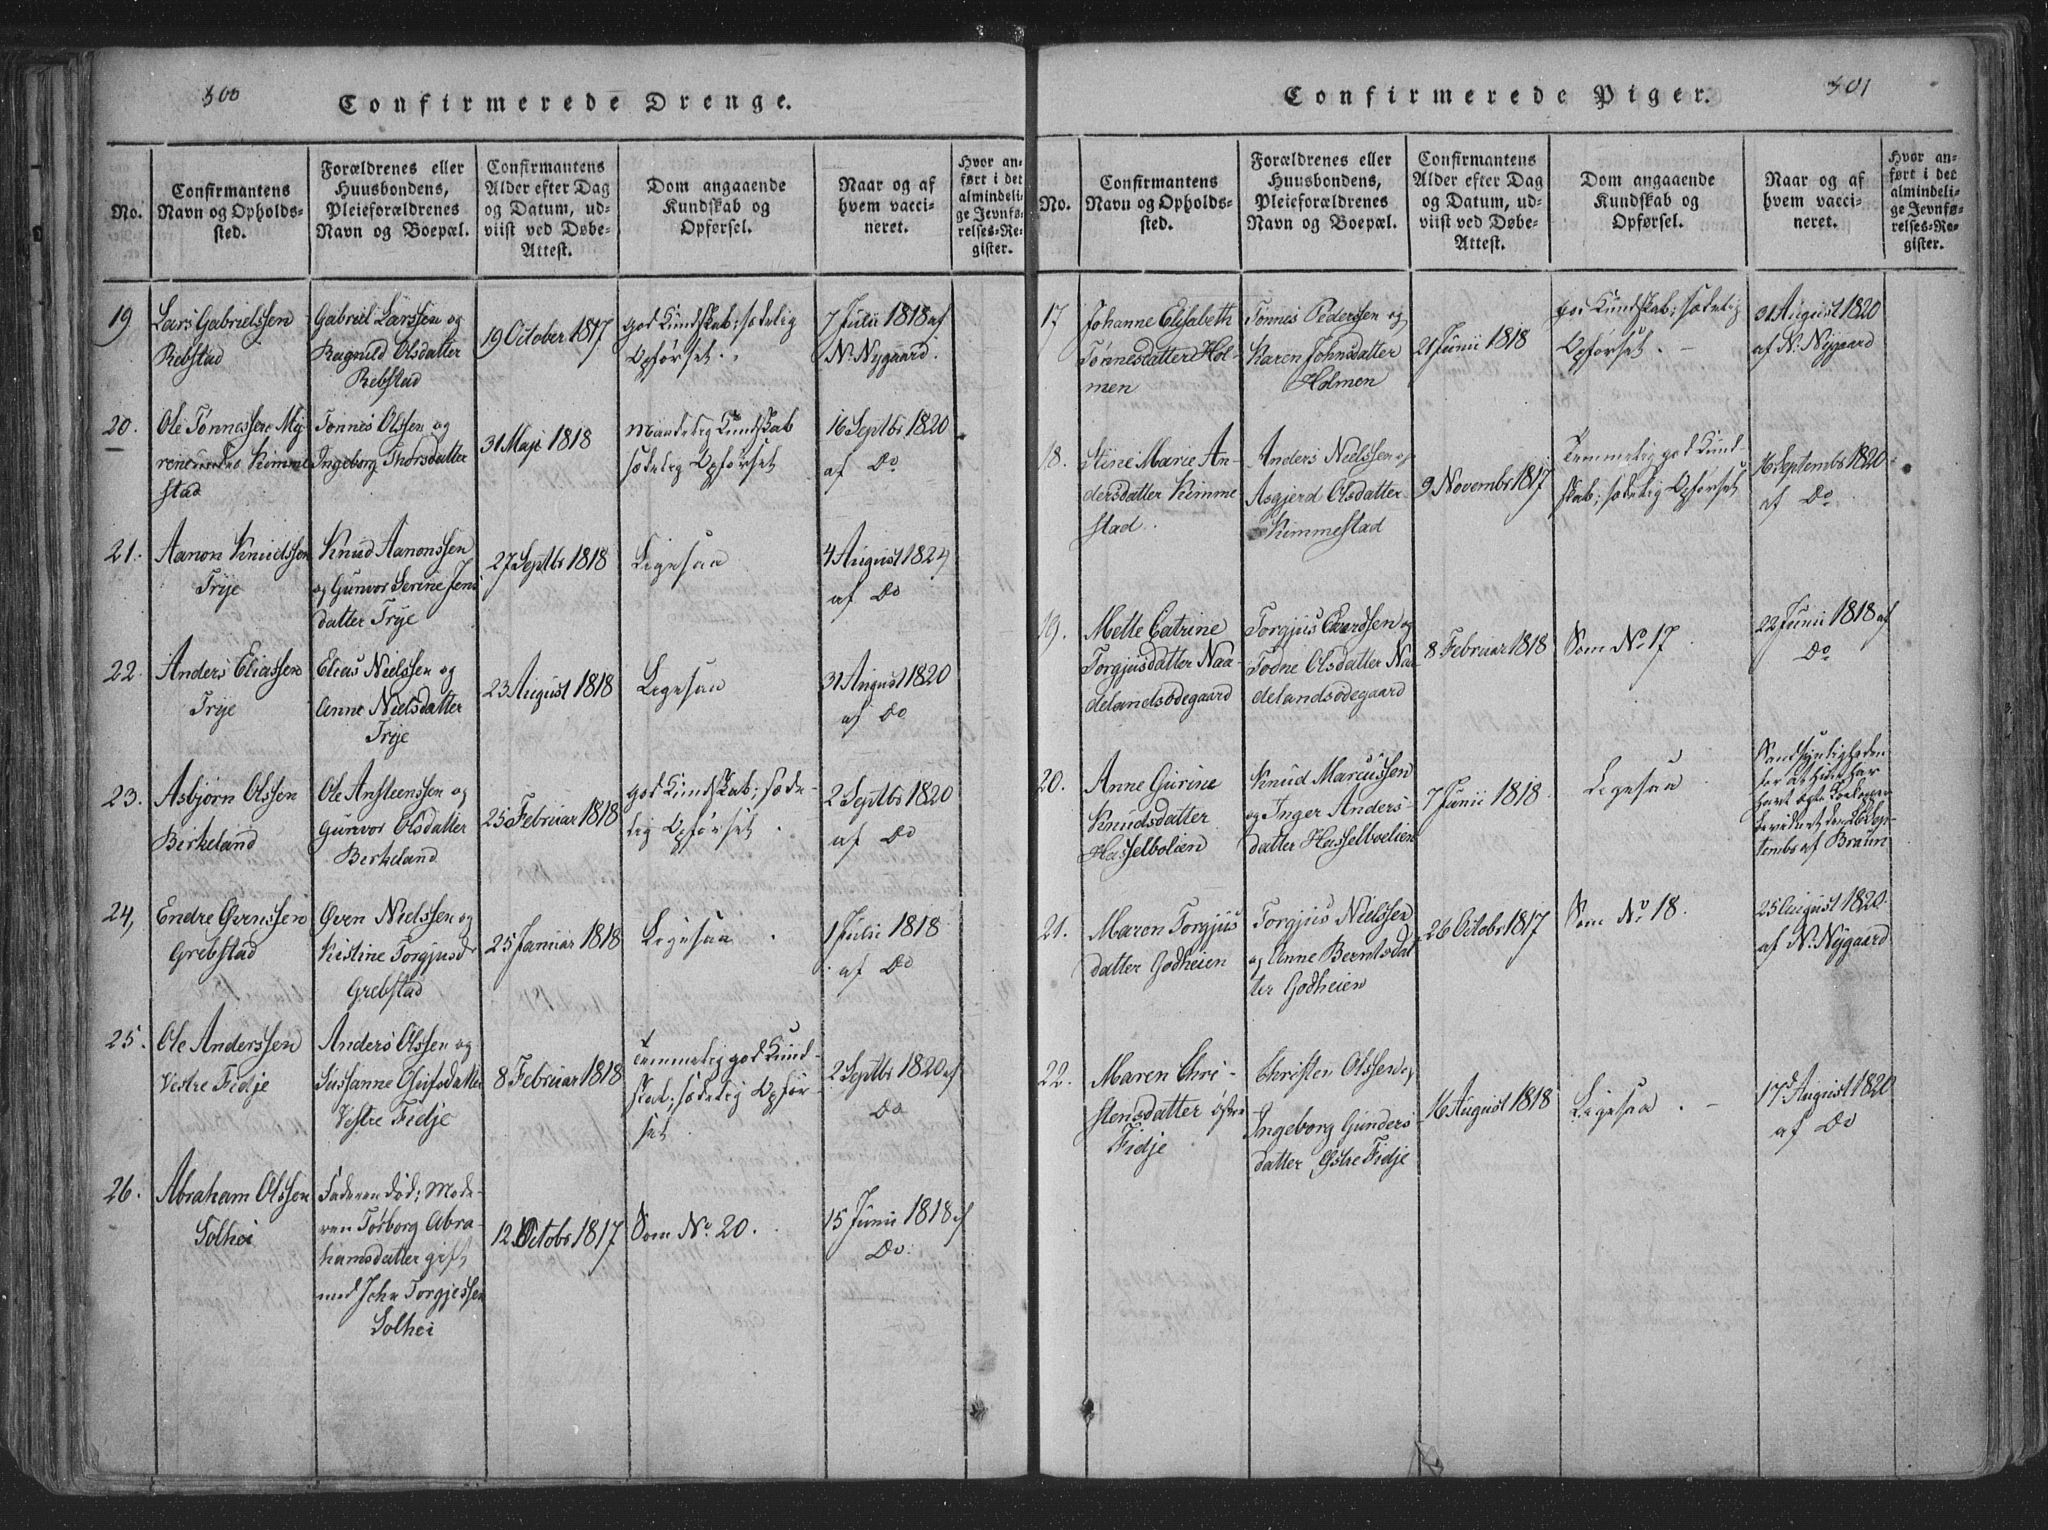 300
Confirmerede Drenge.
No.
Confirmantens
Navn og Opholds-
sted.
Forældrenes eller
Huusbondens,
Pleieforældrenes
Navn og Boepæl.
Confirmantens
Alder efter Dag
og Datum, ud-
viist ved Døbe-
Attest.
Dom angaaende
Kundskab og
Opførsel.
Naar og af
hvem vacci-
neret.
Hvor an-
ført i det
almindeli-
ge Jevnfø-
relses-Re-
gister.
19
Lars Gabrielssen
Rebstad
Gabriel Larssen og
Ragnild Olsdatter
Rebstad
19 October 1817
god Kundskab; sædelig
Opførsel.
7 Julii 1818 af
N. Nygaard.
20.
Ole Tønnessen My-
rene Kimme
stad
Tønnes Olssen og
Ingeborg Thorsdatter
31 Maji 1818
Maadelig Kundskab
sædelig Opførsel
16 Septbr 1820
af Do
21.
Aanon Knudssen
Trye
Knud Aanonssen
og Gunvor Serine Jens
datter Trye
27 Septbr 1818
Ligesaa
4 August 1824
af Do
22.
Anders Eliassen
Trye
Elias Nielssen og
Anne Nielsdatter
Trye
23 August 1818
Ligesaa
31 August 1820
af Do
23.
Asbjørn Olssen
Birkeland
Ole Ansteenssen og
Gunvor Olsdatter
Birkeland
25 Februar 1818
god Kundskab; sæde-
lig Opførsel.
2 Septbr 1820
af Do
24,
Endre Øvenssen
Grebstad
Øven Nielssen og
Kistine Torgjusdr
Grebstad
25 Januar 1818
Ligesaa
1 Julii 1818
af Do
25.
Ole Anderssen
Vestre Fidje
Anders Olssen og
Susanne datter
Vestre Fidje
8 Februar 1818
Temmelig god Kund-
skab; sædelig Opfør-
sel
2 Septbr 1820 af
Do
26.
Abraham Olssen
Solhei
Faderen død; Mode-
ren Tørborg Abra-
hamsdatter gift
med John Torgjessen
Solhei
12 Octobr 1817
Som No. 20.
15 Junii 1818 af
Do.
301
Confirmerede Piger.
No.
Confirmantens
Navn og Opholds-
sted.
Forældrenes eller
Huusbondens,
Pleieforældrenes
Navn og Boepæl.
Confirmantens
Alder efter Dag
og Datum, ud-
viist ved Døbe-
Attest.
Dom angaaende
Kundskab og
Opførsel.
Naar og af
hvem vacci-
neret.
Hvor an-
ført i det
almindeli-
ge Jevnfø-
relses-Re-
gister.
17
Johanne Elisabeth
Tønnesdatter Hol-
men
Tønnes Pederssen og
Karen Johnsdatter
Holmen
21 Junii 1818
god Kundskab; sædelig
Opførsel.
31 August 1820
af N. Nygaard
18.
Stine Marie An-
dersdatter Kimme
stad.
Anders Nielssen og
Asgjerd Olsdatter
Kimmestad
9 Novembr 1817
Temmelig god Kund-
skab; sædelig Opførsel
16 Septembr 1820
af Do
19.
Mette Catrine
Torgjusdatter Naa-
delandsødegaard
Torgjus og
Todne Olsdatter Naa
delandsødegaard
8 Februar 1818
Som No 17
22 Junii 1818 af
Do
20.
Anne Gurine
Knudsdatter
Hasselbolien
Knud Marcussen
og Inger Anders-
datter Hasselboelien
7 Junii 1818
Ligesaa
Sandsynligheden
for at hun har
havt Kokopper
bevidnet den 26 Sep-
tembr af Braun
21.
Maron Torgjus
datter Godheien
Torgjus Nielssen
og Anne Berntsdat
ter Godheien
26 Octobr 1817
Som No. 18.
25 August 1820
af N. Nygaard
22.
Maren Chri-
stensdatter østre
Fidje
Christen Olssen og
Ingeborg Gunders
datter Østre Fidje
16 August 1818
Ligesaa.
17d August 1820
af Do